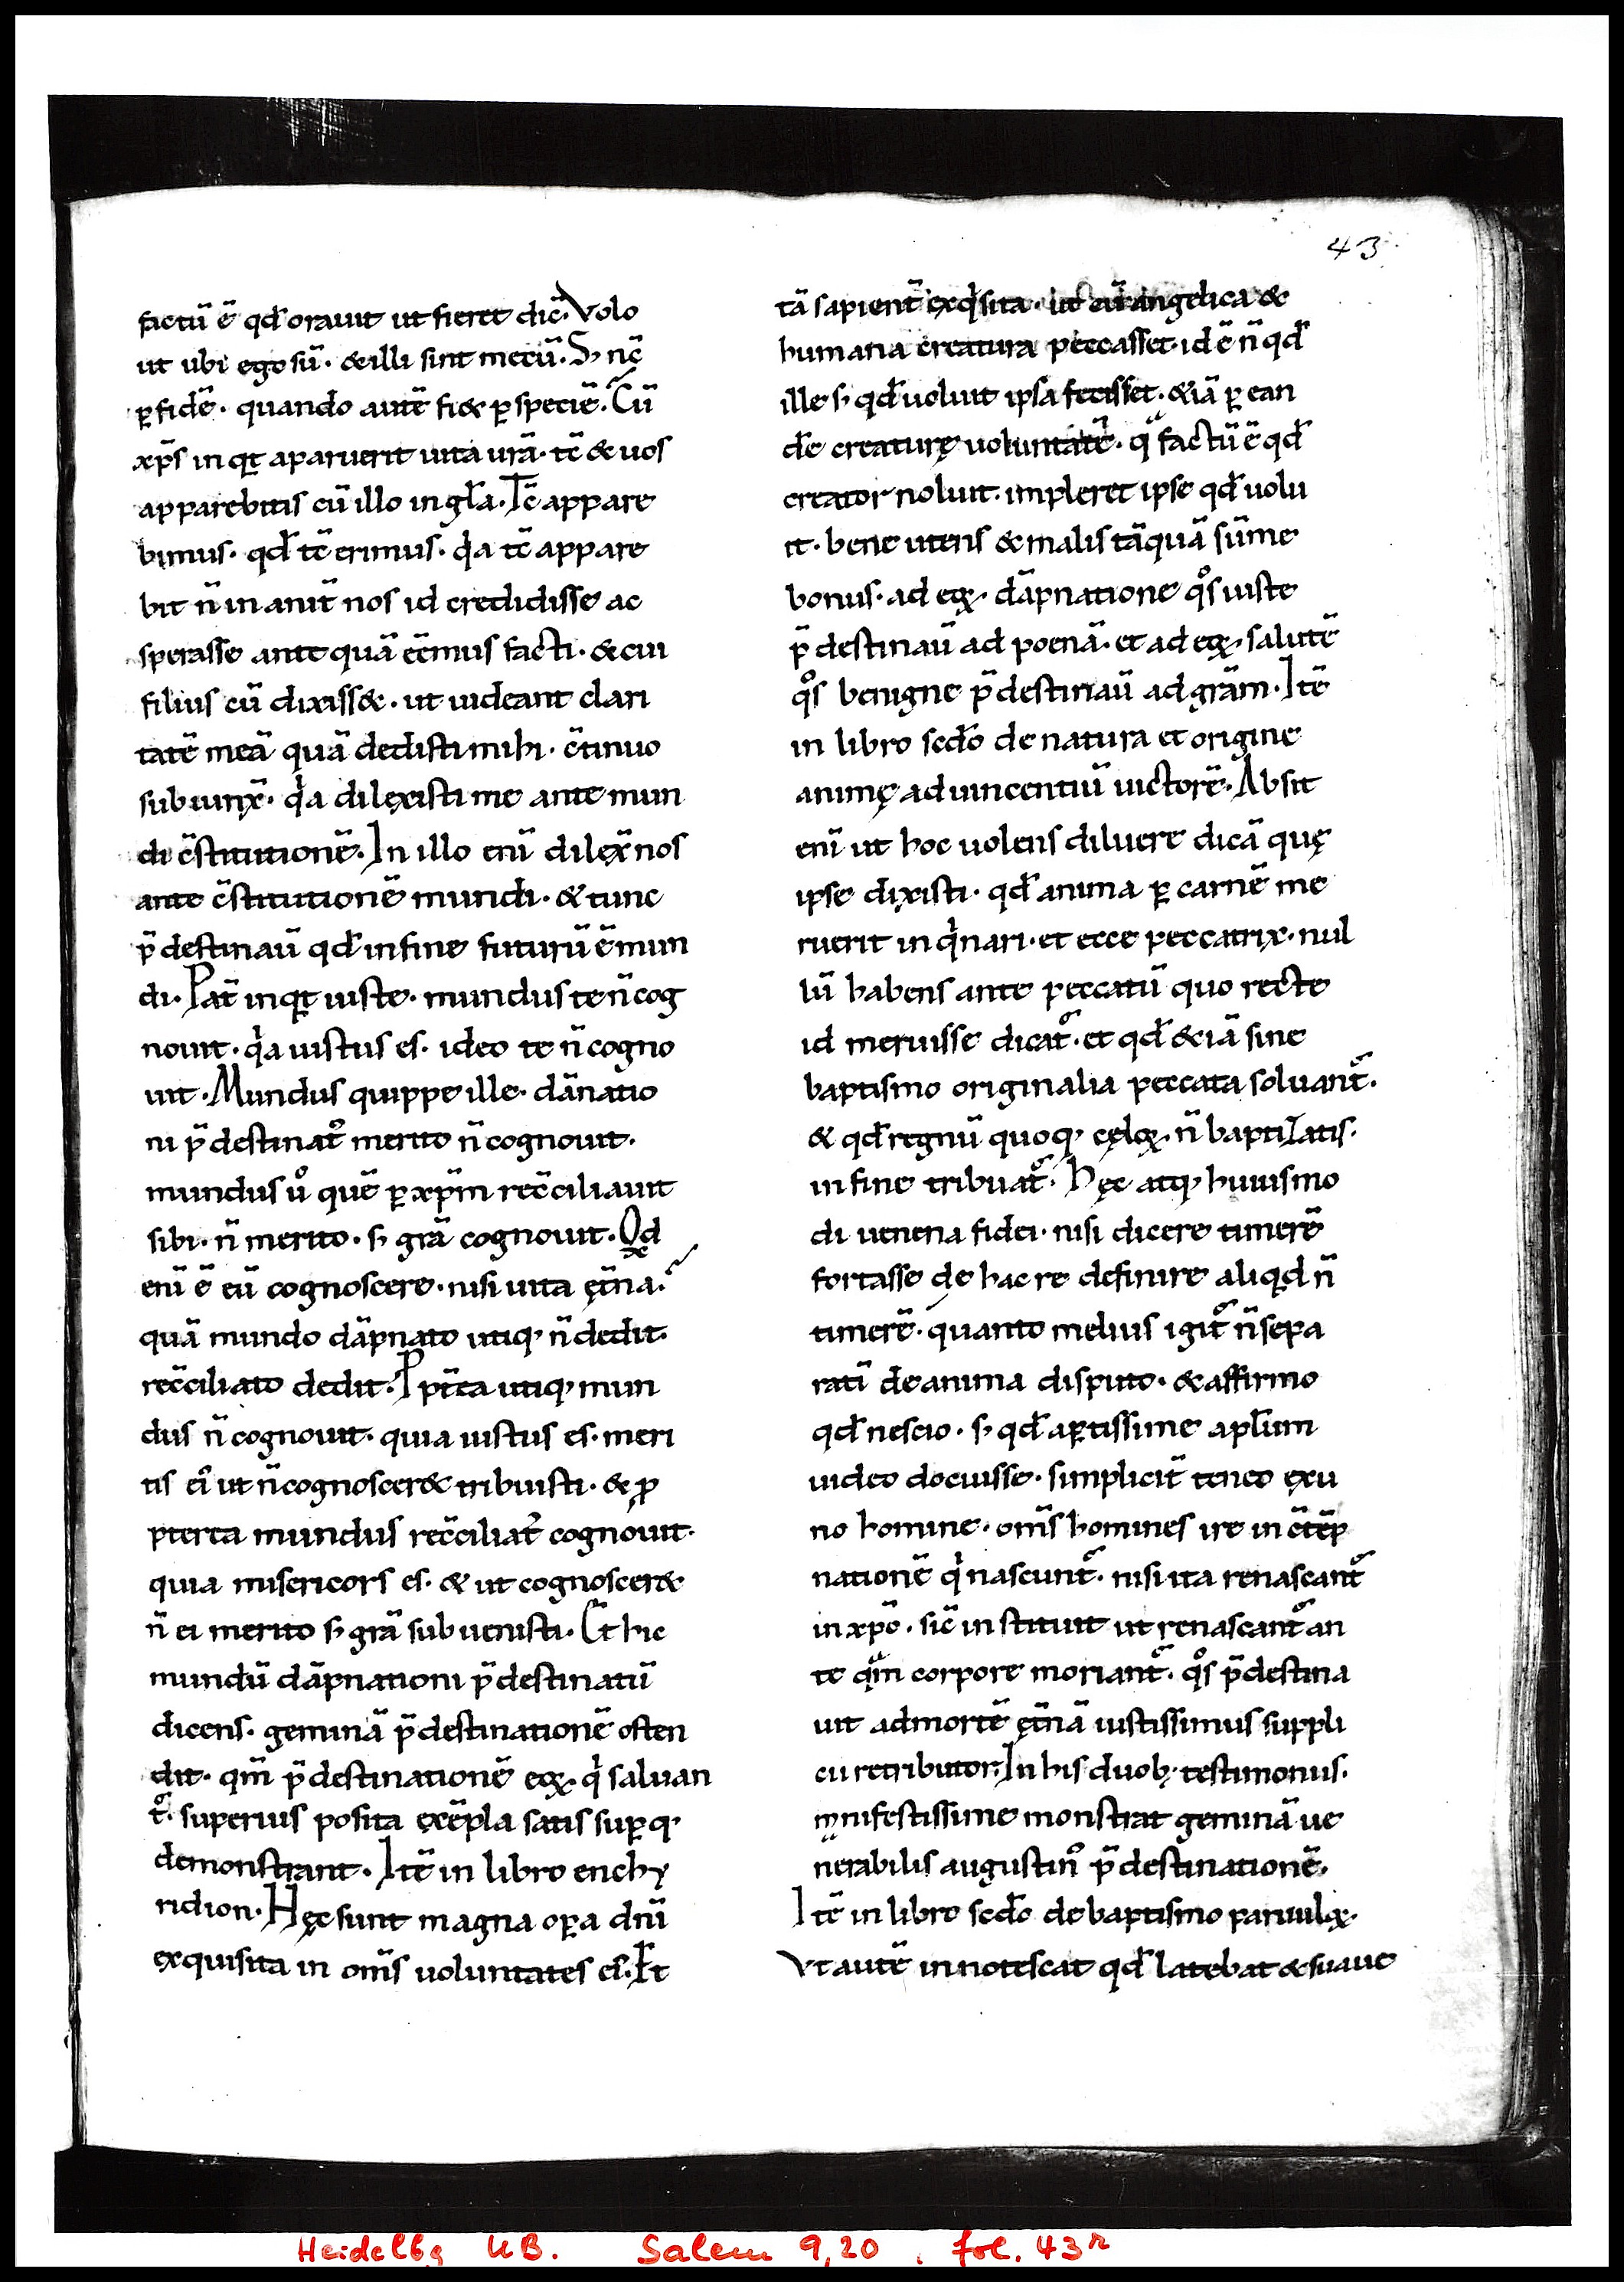 43
factũ ẽ qđ orauit ut fieret dic̃. Volo
ut ubi ego sũ · & illi sint mecũ. S; nc̃
ꝑ fidẽ · quando autẽ fi& ꝑ speciẽ. Cũ
xp̃s inqͥt aparuerit uita urã · tc̃ & uos
apparebitis cũ illo in gl̃a. Tc̃ appare
bimus · qđ tc̃ erimus · qͥa tc̃ appare
bit ñ inanit̃ nos id credidisse ac
sperasse ante quã eẽmus facti · & cui
filius cũ dixiss& · ut uideant clari
tatẽ meã quã dedisti mihi · c̃tinuo
subiunx̃ · qͥa dilęxisti me ante mun
di c̃stitutionẽ. In illo enĩ dilex̃ nos
ante c̃stitutionẽ mundi · & tunc
p̃destinaũ qđ in fine futurũ ẽ mun
di. Pat̃ inqͥt iuste · mundus te ñ cog
nouit · qͥa iustus es · ideo te ñ cogno
uit · Mundus quippe ille · dãnatio
ni p̃destinatꝰ merito ñ cognouit ·
mundus uͦ quẽ ꝑ xp̃m rec̃ciliauit
sibi · ñ merito · s; grã cognouit. Qͥd
enĩ ẽ eũ cognoscere · nisi uita ęt̃na.
quã mundo dãpnato utiq; ñ dedit ·
rec̃ciliato dedit. Ppt̃ea utiq; mun
dus ñ cognouit · quia iustus es · meri
tis eiꝰ ut ñ cognoscer& tribuisti · & ꝓ
pterea mundus rec̃ciliatꝰ cognouit ·
quia misericors es · & ut cognoscer&
ñ ei merito s; grã subuenisti. Et̃ hic
mundũ dãpnationi p̃destinatũ
dicens · geminã p̃destinationẽ osten
dit · qm̃ p̃destinationẽ eoꝝ · qͥ saluan
t᷑ · superius posita exẽpla satis suꝑq;
demonstrant · Itẽ in libro enchy
ridion · Hęc sunt magna oꝑa dnĩ
exquisita in om̃s uoluntates eiꝰ. Et
tã sapient̃ exqͥsita · ut cũ angelica &
humana creatura peccasset · id ẽ ñ qđ
ille s; qđ uoluit ipsa fecisset · & iã ꝑ ean
dẽ creaturę uoluntatẽ · qͣ factũ ẽ qđ
creator noluit · impleret ipse qđ uolu
it · bene utens & malis tãquã sũme
bonus · ad eoꝝ · dãpnatione qͦs iuste
p̃destinaũ ad poenã · et ad eoꝝ · salutẽ
qͦs benigne p̃destinaũ ad grãm · Itẽ
in libro scđo de natura et origine
animę ad uincentiũ uictorẽ · Absit
enĩ ut hoc uolens diluere dicã quę
ipse dixisti · qđ anima ꝑ carnẽ me
ruerit inqͥnari · et ecce peccatrix · nul
lũ habens ante peccatũ quo recte
id meruisse dicat᷑ · et qđ & iã sine
baptismo originalia peccata soluant᷑ ·
& qđ regnũ quoq; cęloꝝ · ñ baptizatis ·
in fine tribuat᷑ · Hęc atq; huiusmo
di uenena fidei · nisi dicere timerẽ
fortasse de hac re definire aliqͥd ñ
timerẽ · quanto melius igit᷑ ñ sepa
ratĩ de anima disputo · & affirmo
qđ nescio · s; qđ aꝑtissime apl̃um
uideo docuisse · simplicit̃ teneo exu
no homine · om̃s homines ire in c̃tẽp
nationẽ qͥ nascunt᷑ · nisi ita renascant᷑
in xp̃o · sic̃ instituit ut renascant᷑ an
te qͣm corpore moriant᷑ · qͦs p̃destina
uit ad mortẽ ęt̃nã iustissimus suppli
cii retributor. In his duob; testimoniis ·
manifestissime monstrat geminã ue
nerabilis augustinꝰ p̃destinationẽ ·
Itẽ in libro scđo de baptismo paruuloꝝ ·
Vt autẽ innotescat qđ latebat & suaue
Heidelbg UB. Salem 9,20, fol. 43r